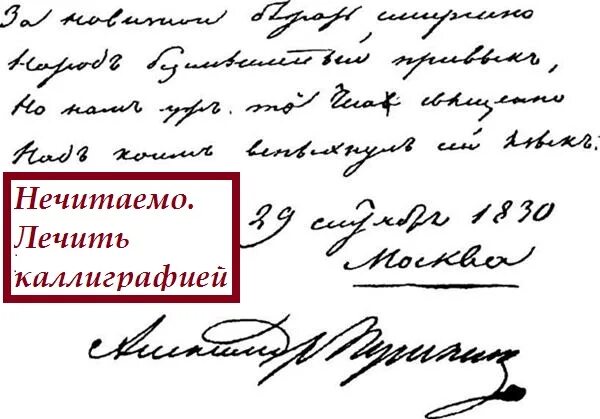 За новизной бѣжать смиренно
Народъ безсмысленный привыкъ,
Но намъ ужъ то Чело священно
Надъ коимъ вспыхнулъ сей языкъ.
Нечитаемо.
Лечить
каллиграфией
29 сентября 1830
Москва
Александръ Пушкинъ